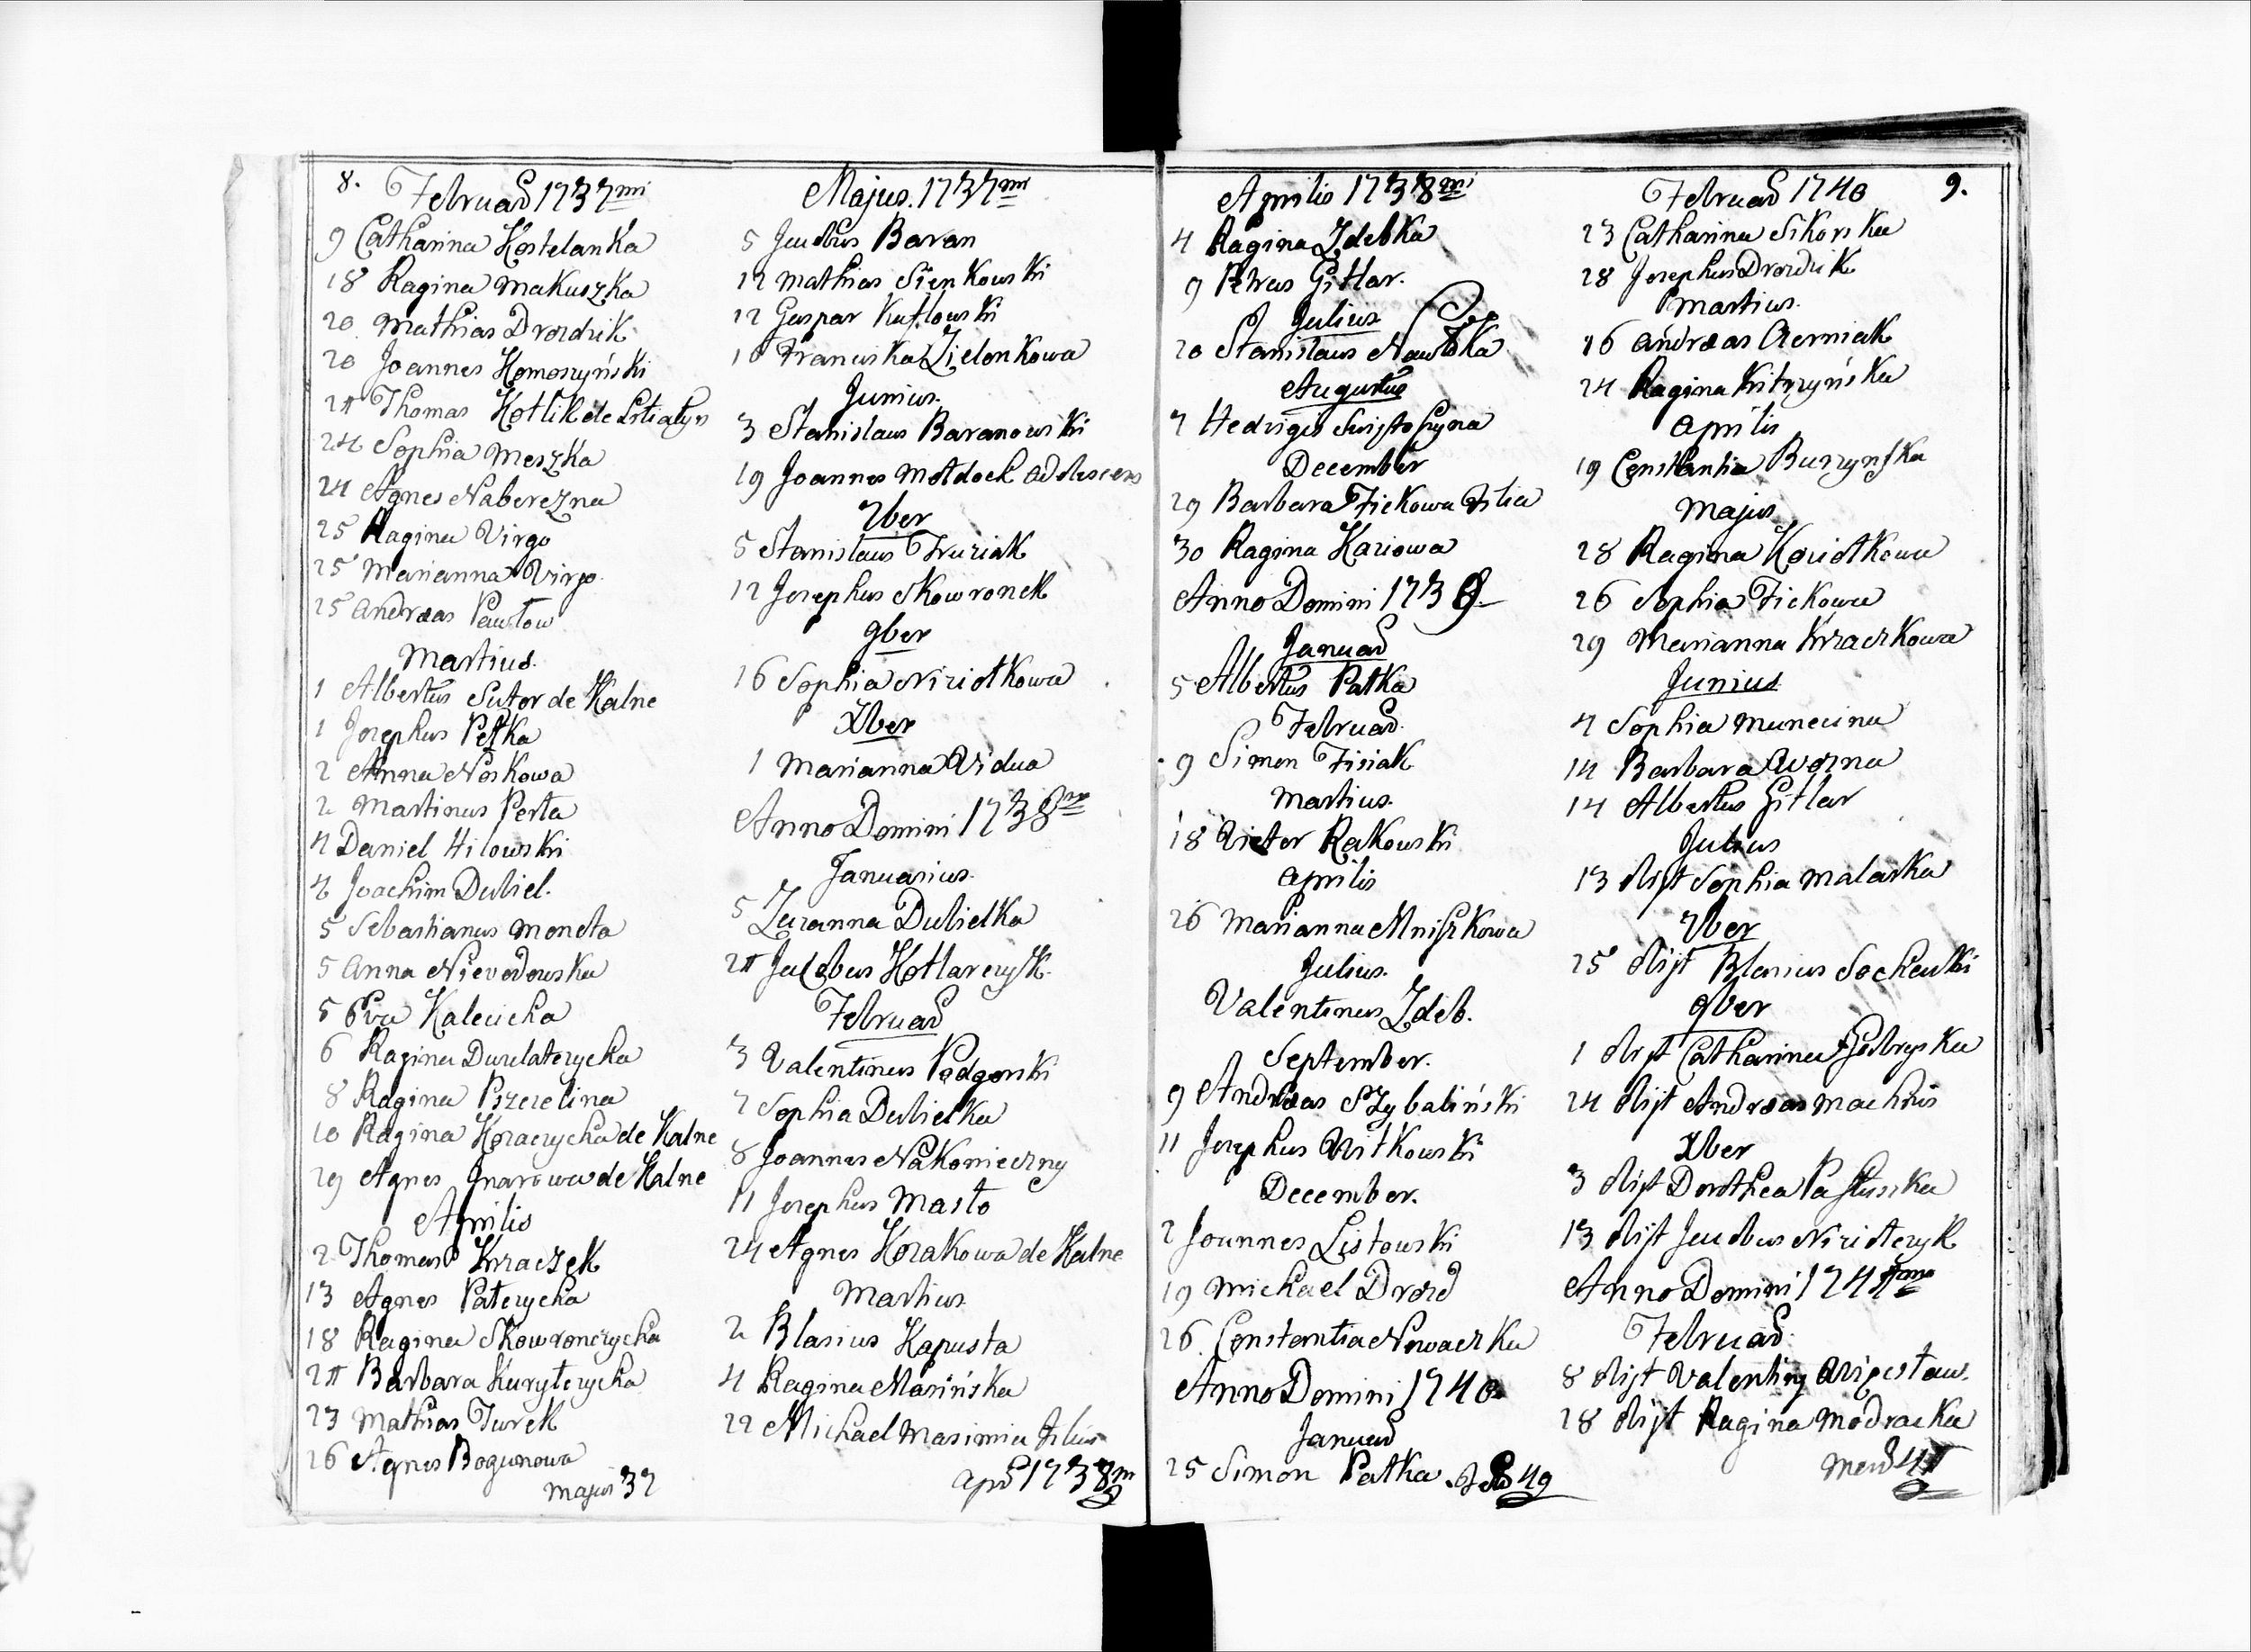 8.
Februar 1737mi
9 Catharina Kostelanka
18 Ragina Makuszka
20 Mathias Drozdzik
20 Joannes Komoszyński
21 Thomas Kotlik de
24 Sophia Meszka
24 Agnes Naberezna
25 Ragina Virgo
25 Marianna Virgo
25 Andræas Pawłow
Martius.
1 Albertus Sutor de Kalne
1 Josephus Petka
2 Anna Noskowa
2 Martinus Perta
4 Daniel Hilowski
4 Joachim Dubiel.
5 Sebastianus Moneta
5 Anna Niewodowska
5 Eva Kalecicha
6 Ragina
8 Ragina Pszczelina
10 Ragina Kozaczycha de Kalne
29 Agnes Gnarowa de Kalne
Aprilis
2 Thomas Kraczek
13 Agnes Paterycha
18 Ragina Skowronczycha
21 Barbara Kurytczycha
23 Mathias Turek
26 Agnes Bogunowa
Majus 37
Majus. 1737mi
5 Jacobus Baran
12 Mathias Sienkowski
12 Gaspar Kutłowski
Franciska Zielonkowa
Junius.
3 Stanislaus Baranowski
19 Joannes Mołdoch adolescens
7ber
5 Stanislaus Fruziak
12 Josephus Skowronek
9ber
16 Sophia Niziołkowa
Xber
1 Marianna Vidua
Anno Domini 1738vo
Januarius.
5 Zuzanna Dubielka
21 Jacobus Kotlarczyk.
Februar
3 Valentinus Podgorski
7 Sophia Dubielka
8 Joannes Nakonieczny
11 Josephus Masło
24 Agnes Kozakowa de Kalne
Martius
2 Blasius Kapusta
4 Ragina Masińska
22 Michael Filius
Apr 1738m
Aprilis 1738mi
4 Ragina Zdebka
9 Petrus Gitlar.
Julius
20 Stanislaus Nawłoka
Augustus
7 Hedvigis
December
29 Barbara Fickowa Filia
30 Ragina Kaziowa
Anno Domini 1739
Januar
5 Albertus Patka
Februar.
9 Simon Fisiak
Martius.
18 Victor Rakowski
Aprilis
26 Marianna Mniszkowa
Julius.
Valentinus Zdeb.
September.
9 Andræas Szybaliński
11 Josephus Witkowski
December.
2 Joannes Listowski
19 Michael Drozd
26 Constantia Nowaczka
Anno Domini 1740
Januar
25 Simon Patka
Februar 1740
9.
23 Catharina Sikorska
28 Josephus Drozdzik
Martius.
16 Andræas Czerniak
24 Ragina
Aprilis
19 Constantia Burzynska
Majus
28 Ragina Koziołkowa
26 Sophia Fickowa
29 Marianna Kraczkowa
Junius
4 Sophia
14 Barbara Worna
14 Albertus Gitlar
Julius
13 obijt Sophia Malarka
7ber
25 obijt Blasius Sochacki
9ber
1 obijt Catharina
24 obijt Andræas Machnis
Xber
3 obijt Dorothea Pastuszka
13 obijt Jacobus Niziołczyk
Anno Domini 1741mo
Februar
8 obijt Valenting
28 obijt Ragina Modracka